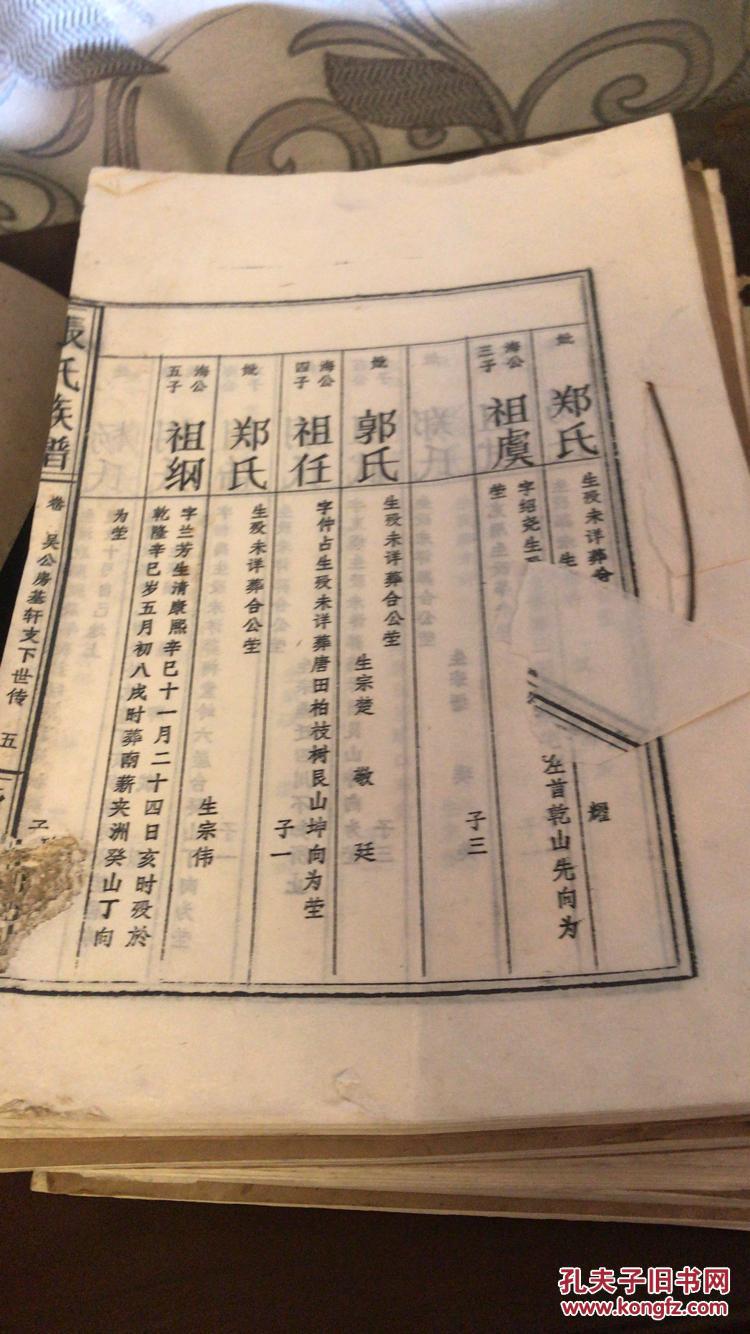 妣
郑氏
生殁未详葬合
耀
海公
三子
祖虞
字绍尧生
左首乾山先向为
茔
子三
妣
郭氏
生殁未详葬合公茔
生宗楚 敬 廷
海公
四子
祖任
字仲占生殁未详葬唐田柏枝树艮山坤向为茔
子一
妣
郑氏
生殁未详葬合公茔
生宗伟
海公
五子
祖纲
字兰芳生清康熙辛巳十一月二十四日亥时殁於
乾隆辛巳岁五月初八戌时葬南薪夹洲癸山丁向
为茔
張氏族谱
卷
吴公房基轩支下世传
五
孔夫子旧书网
www.kongfz.com